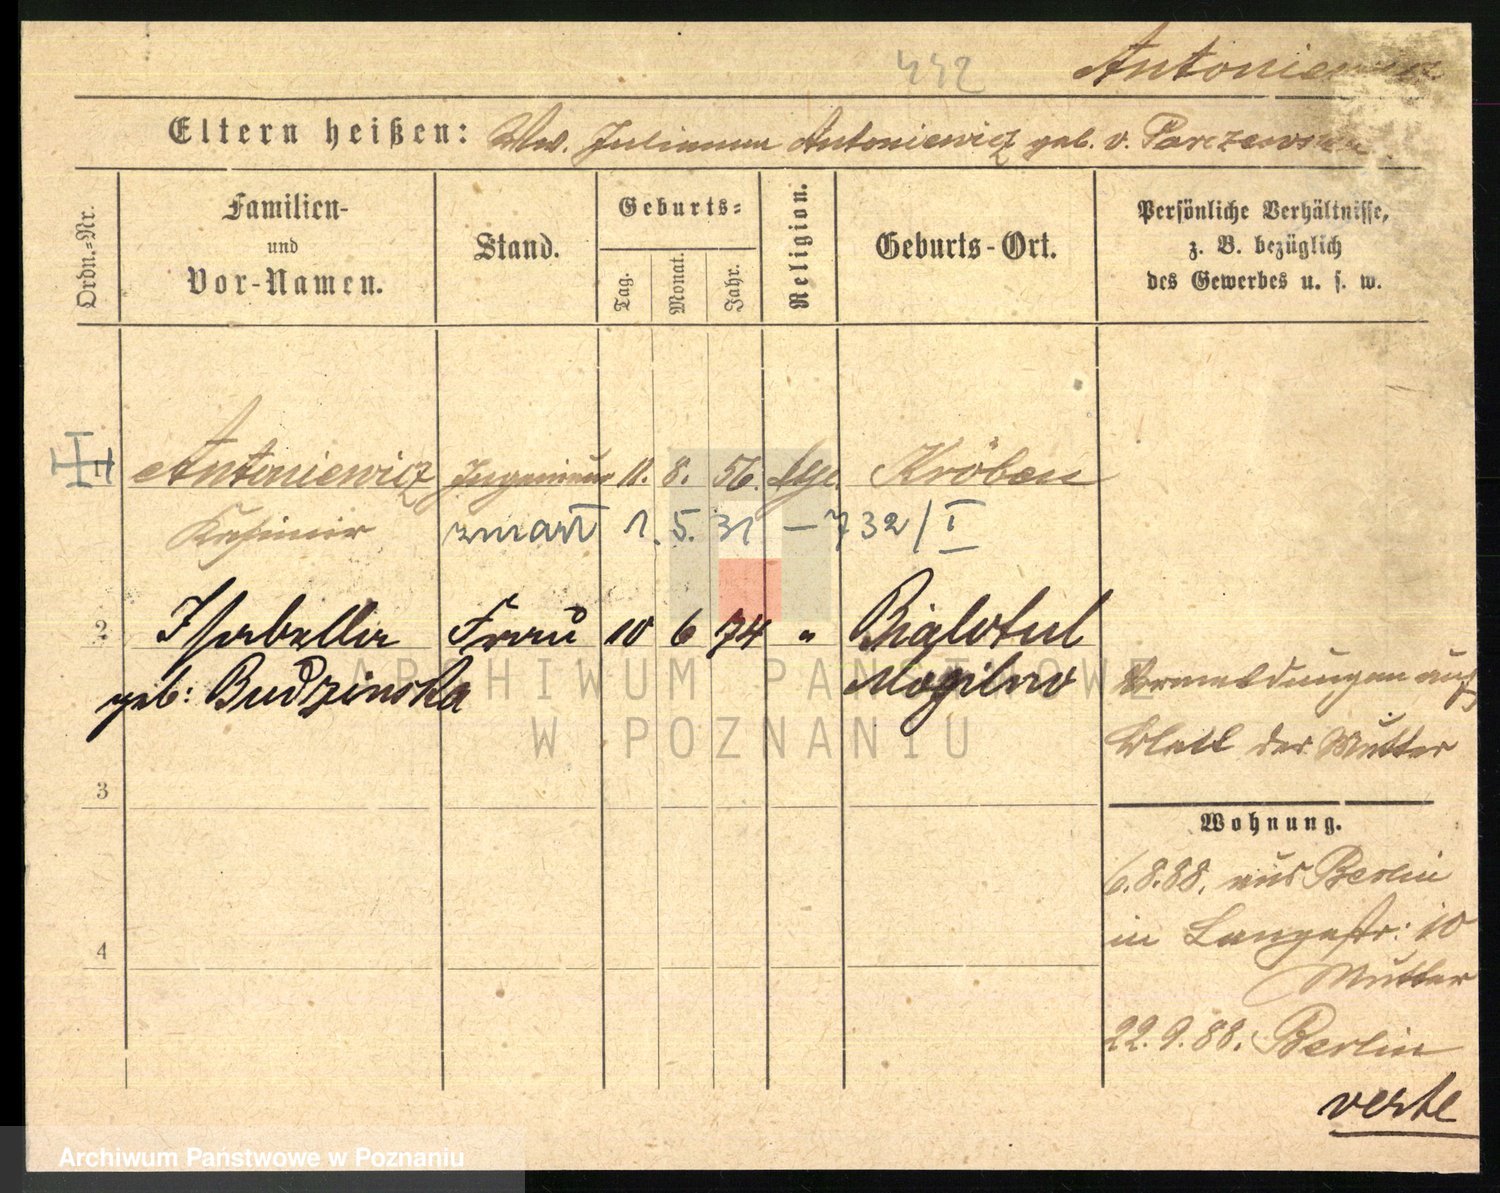 442
Antoniewicz
Eltern heißen: Ww. Julianna Antoniewicz geb. v. Parczewska
Ordn.=Nr.
Familien- und Vor-Namen.
Stand.
Geburts=
Tag.
Monat.
Jahr.
Religion.
Geburts-Ort.
Persönliche Verhältnisse,
z. B. bezüglich
des Gewerbes u. s. w.
1 Antoniewicz Ingenieur 11. 8. 56. Kröben
Kasimir zmarł 1. 5. 31 – 732/I
2 Isabella Frau 10 6 74 " Biglotul
geb: Budzinska Mogilno
Vormeldungen auf
Blatt der Mutter
3
Wohnung.
6.8.88. aus Berlin
in Langestr: 10
Mutter
4
22.9.88. Berlin
verte
ARCHIWUM PAŃSTWOWE
W POZNANIU
Archiwum Państwowe w Poznaniu